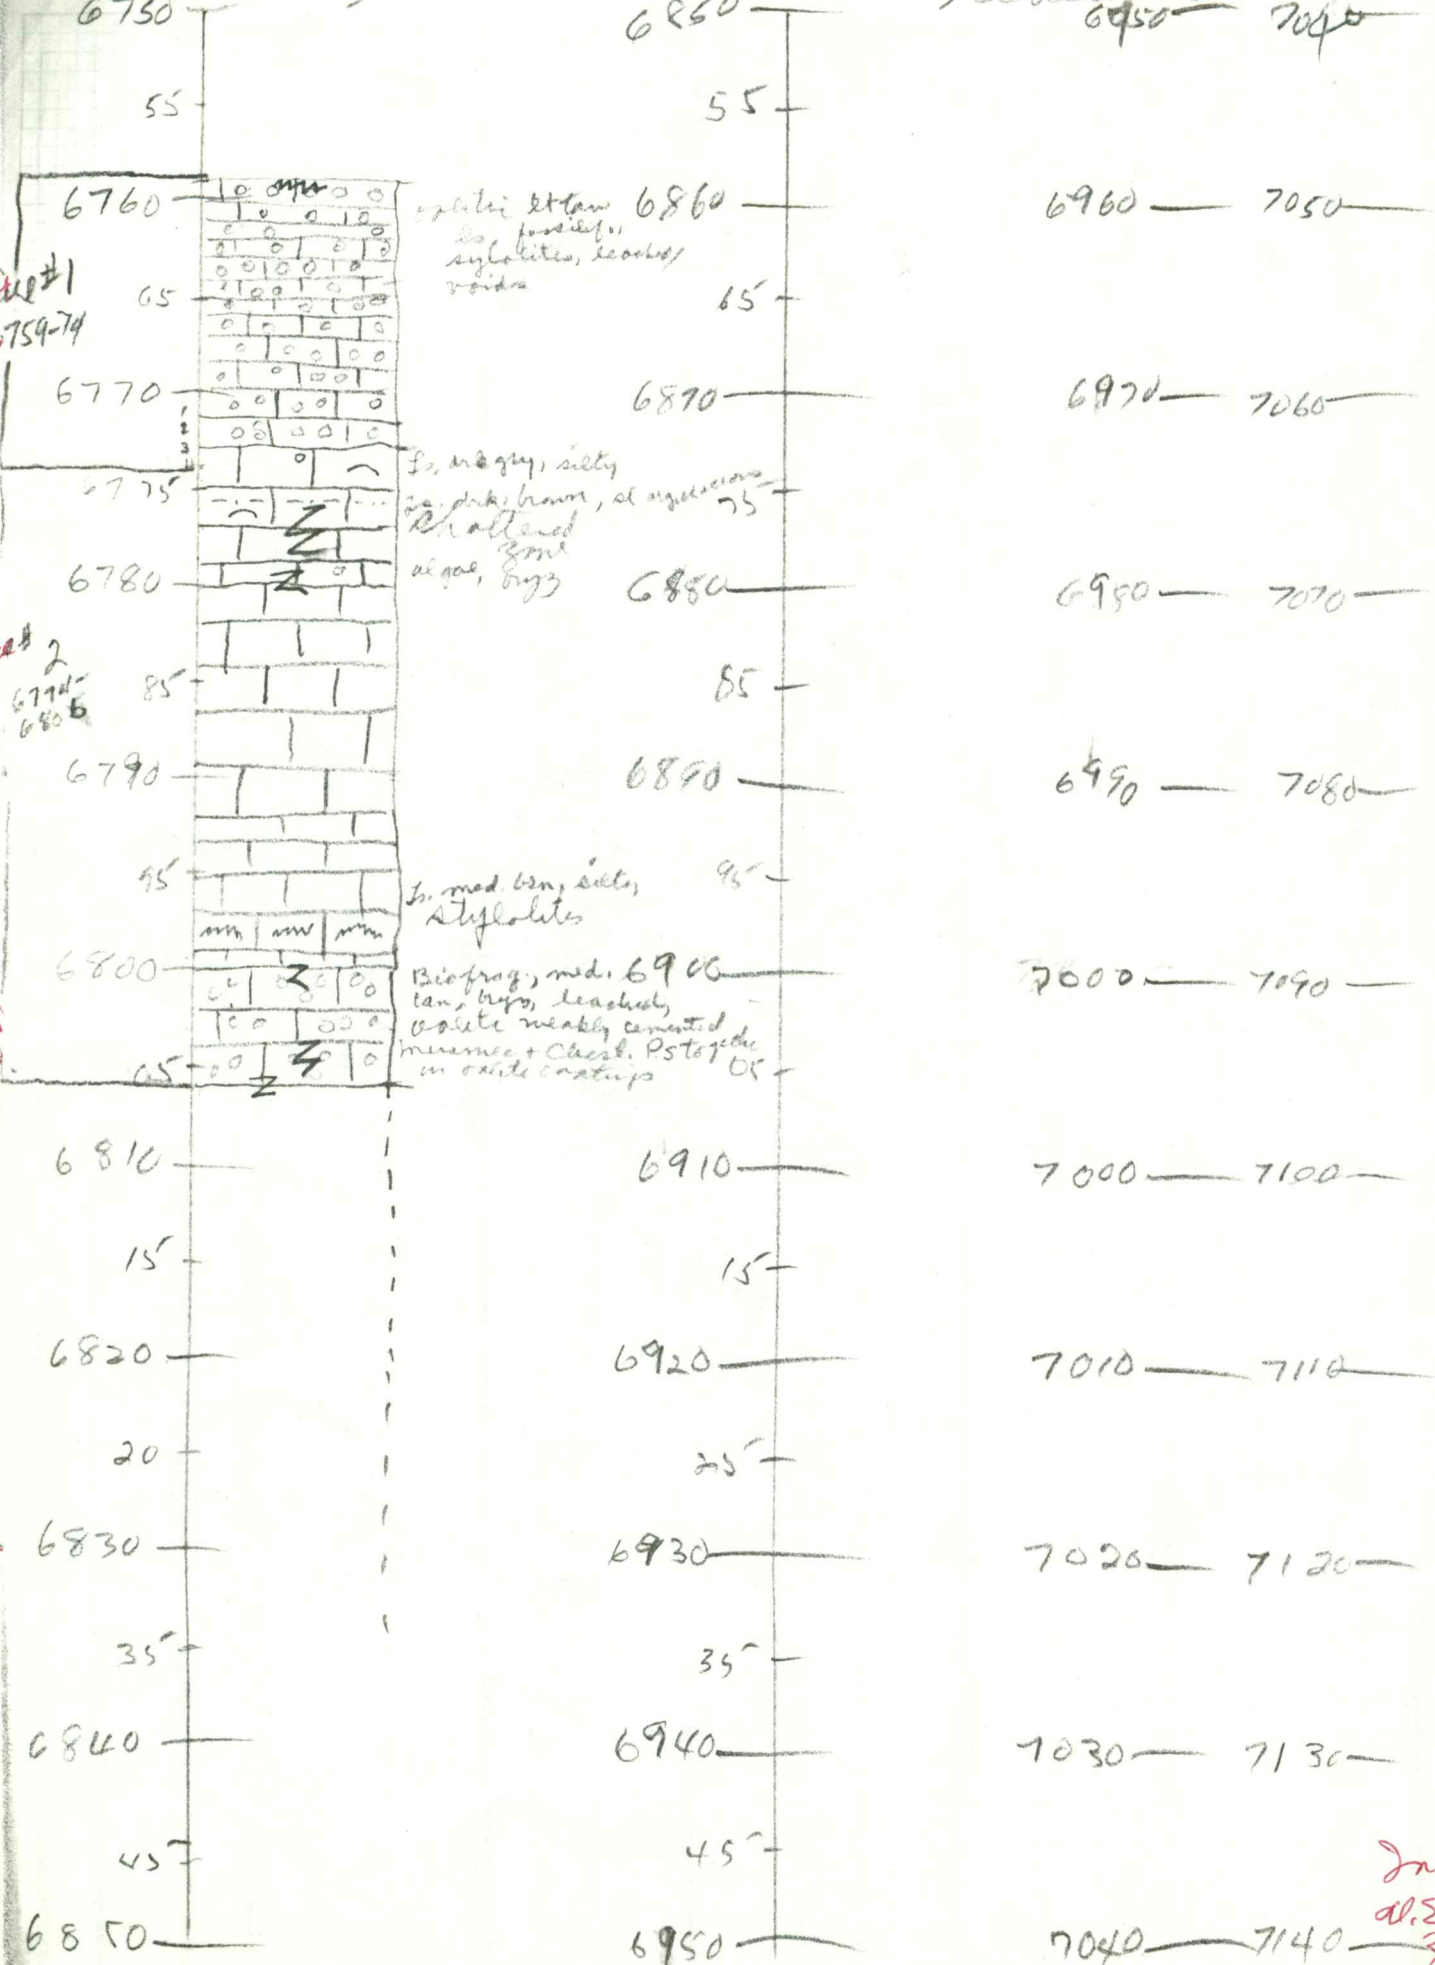 6750
55
6760
#1
759-74
65
6770
1
2
3
6775
6780
# 2
6774-
6806
85
6790
95
6800
05
6810
15
6820
20
6830
35
6840
45
6850
oolitic lt tan
ls, fossilif.,
sylolites, leached
voids
silty
ls. drk. brown, sl argillaceous
Shattered
zone
algae, bryz
Ls. med. brn, silty
stylolites
Biofrag., med.
tan, bryo, leached,
oolite weakly cemented
meramec + Chest. Ps together
in oolite coatings
6850
55
6860
65
6870
75
6880
85
6890
95
6900
05
6910
15
6920
25
6930
35
6940
45
6950
6950 7040
6960 7050
6970 7060
6980 7070
6990 7080
7000 7090
7000 7100
7010 7110
7020 7120
7030 7130
7040 7140